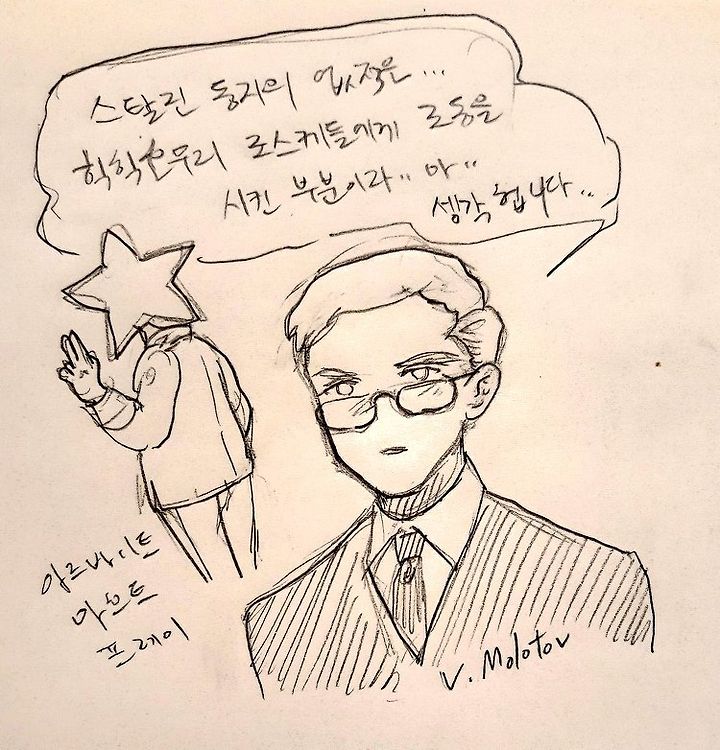 스탈린 동지의 업적은...
우리 로스케들에게 로동을
시킨 부분이라.. 마..
셍각헙니다..
아르바이트
마흐트
프레이
V. Molotov